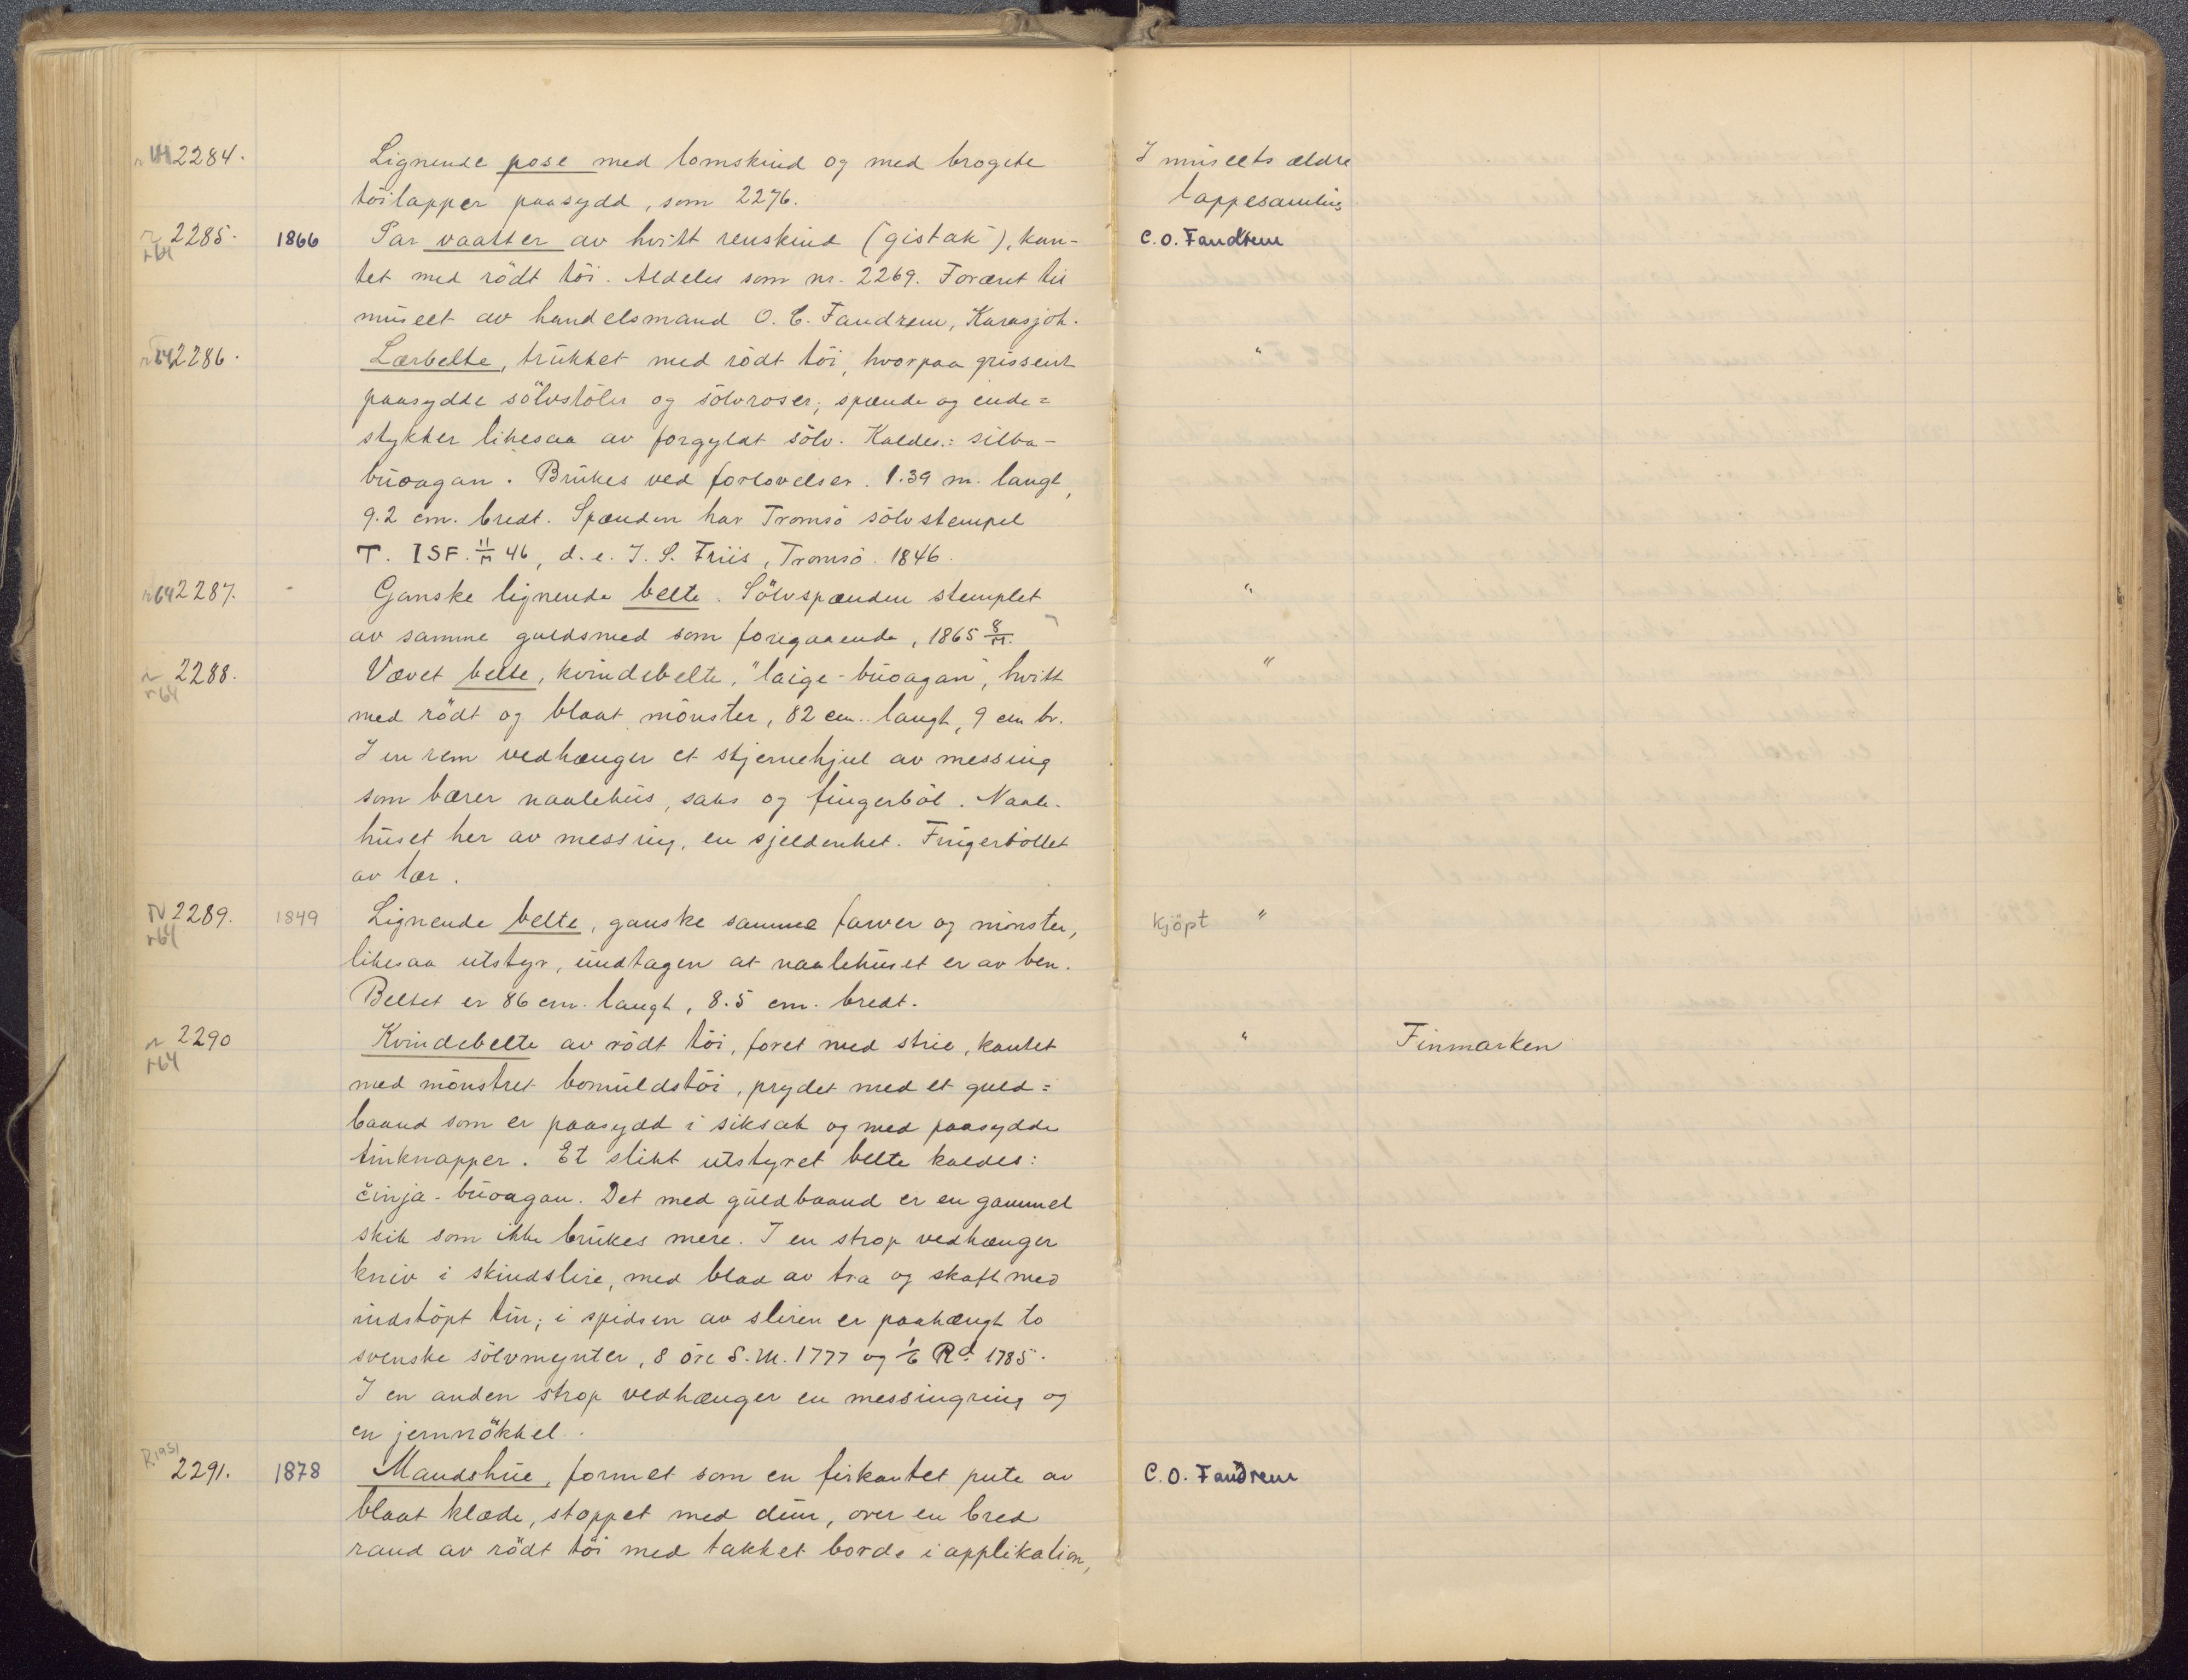 2284. Lignende pose med lomskind og med brogete I museets ældre
töilapper paasydd, som 2276. lappesamling
2285. 1866 Par vaatter av hvitt renskind (gistak), kan- C. O. Fandrem
r64
tet med rödt töi. Aldeles som nr. 2269. Foræret til
museet av handelsmand O. C. Fandrem, Karasjok.
r64 2286. Lærbelte, trukket med rödt töi, hvorpaa "
paasydde sölvstöler og sölvroser; spænde og ende=
stykker likesaa av forgyldt sölv. Kaldes: silba-
buoagan. Brukes ved forlovelser. 1.39 m. langt,
9.2 cm. bredt. Spænden har Tromsö sölvstempel
T. ISF. 11/M 46, d.e. J. S. Friis, Tromsö. 1846.
r64 2287. - Ganske lignende belte. Sölvspænden stemplet "
av samme guldsmed som foregaaende, 1865 8/M.
2288. Vævet belte, kvindebelte, "laige-buoagan", hvitt "
r64
med rödt og blaat mönster, 82 cm. langt, 9 cm br.
I en rem vedhænger et stjernehjul av messing
som bærer naalehus, saks og fingerböl. Naale-
huset her av messing, en sjeldenhet. Fingerböllet
av lær.
N 2289. 1849 Lignende belte, ganske samme farver og mönster, Kjöpt "
r64
likesaa utstyr, undtagen at naalehuset er av ben.
Beltet er 86 cm. langt, 8.5 cm. bredt.
2290 Kvindebelte av rödt töi, foret med strie, kantet " Finmarken
r64
med mönstret bomuldstöi, prydet med et guld=
baand som er paasydd i siksak og med paasydde
tinknapper. Et slikt utstyret belte kaldes:
činja-buoagan. Det med guldbaand er en gammel
skik som ikke brukes mere. I en strop vedhænger
kniv i skindslire, med blad av træ og skaft med
indstöpt tin; i spidsen av sliren er paahængt to
svenske sölvmynter, 8 öre S.M. 1777 og 1/6 Rd. 1785.
I en anden strop vedhænger en messingring og
en jernnökkel.
R1951
2291. 1878 Mandshue, formet som en firkantet pute av C. O. Fandrem
blaat klæde, stoppet med dun, over en bred
rand av rödt töi med takket borde i applikation,